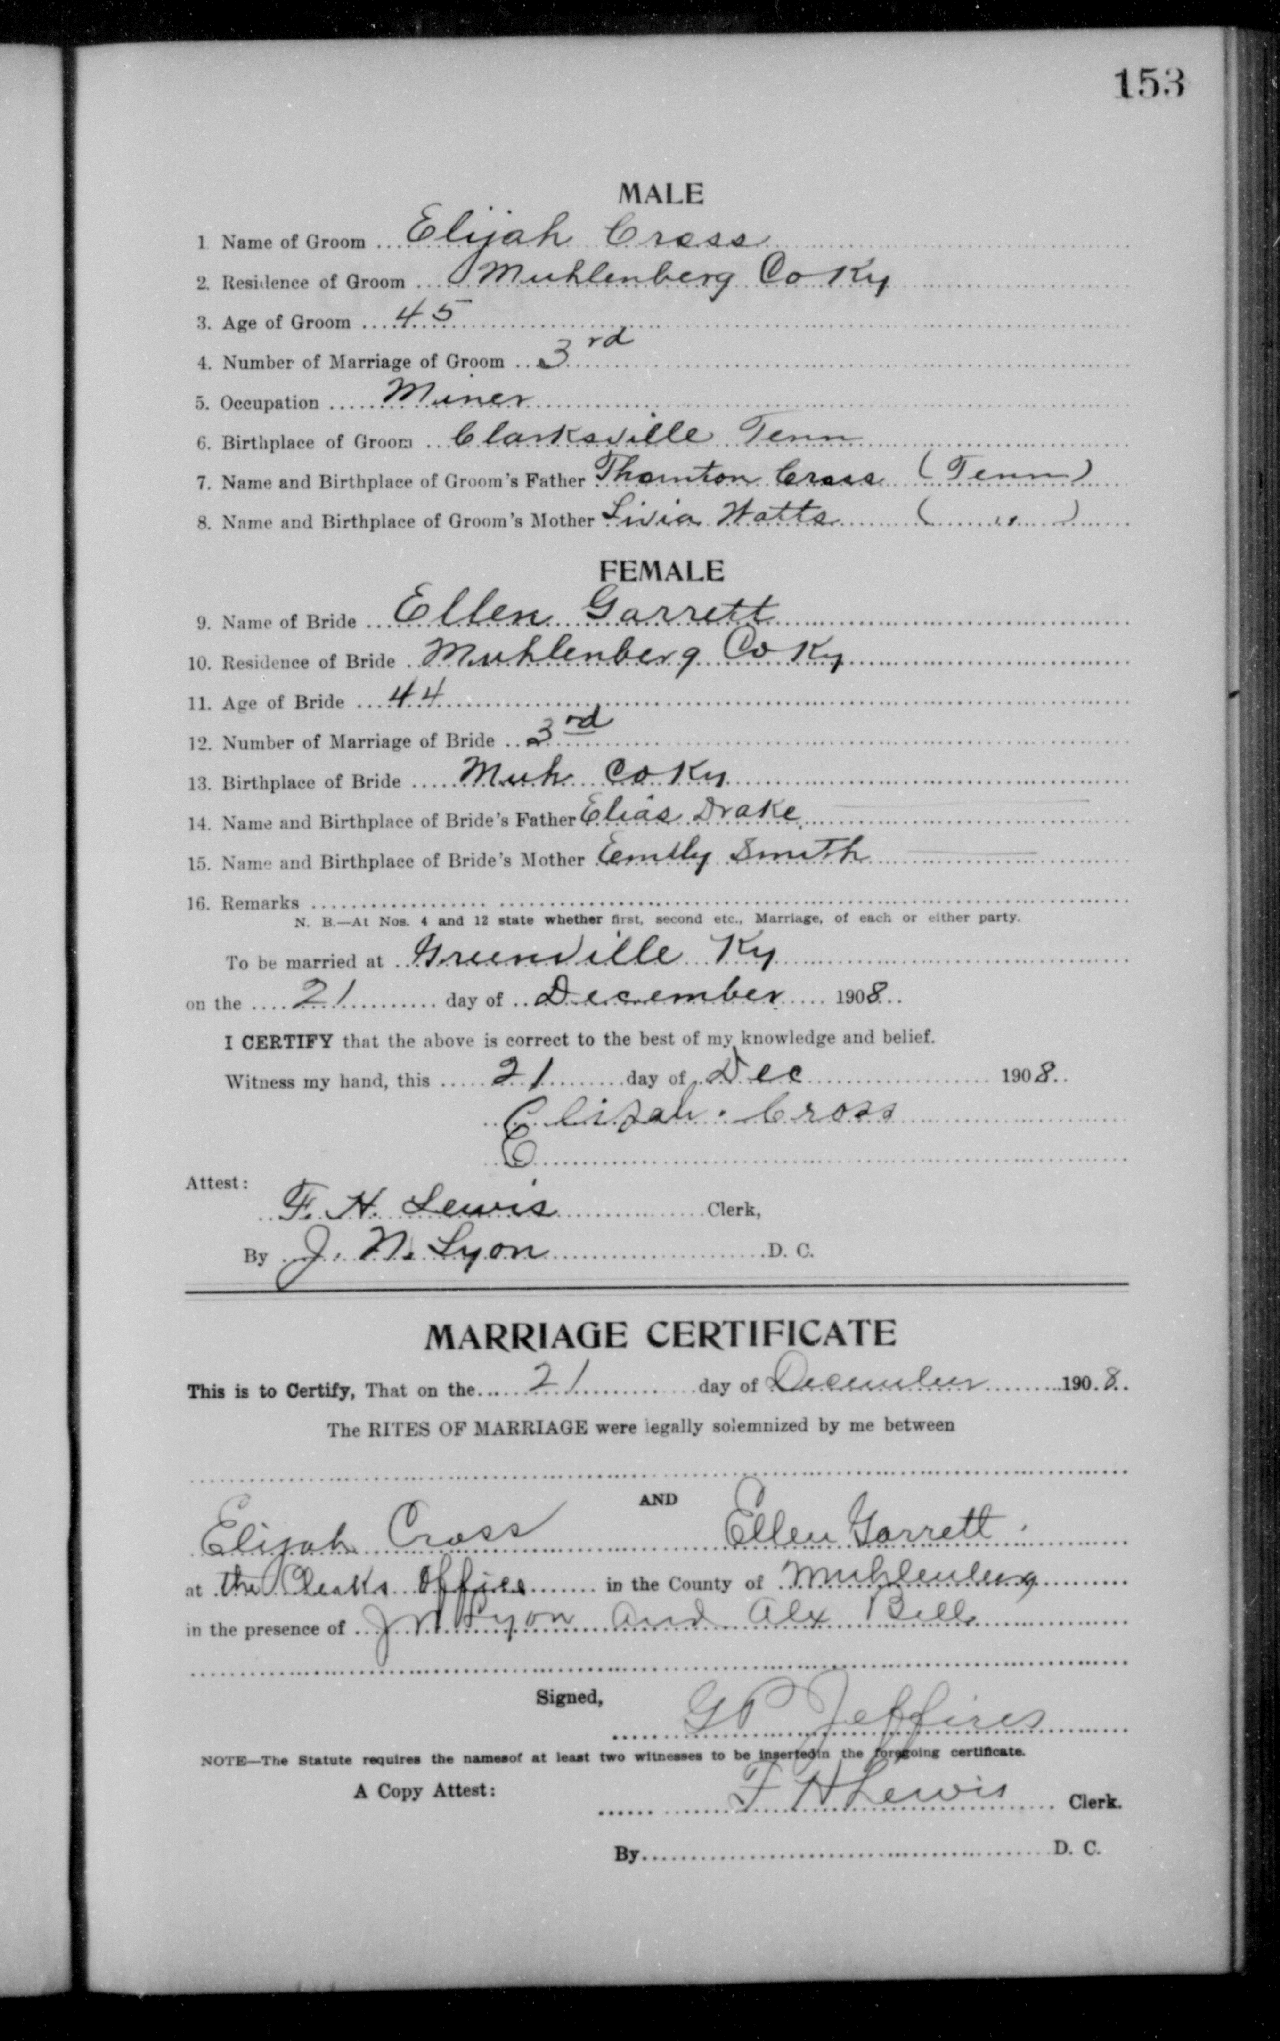 153
MALE
1 Name of Groom Elijah Cross
2. Residence of Groom Muhlenberg Co Ky
3. Age of Groom 45
4. Number of Marriage of Groom 3rd
5. Occupation Miner
6. Birthplace of Groom Clarksville Tenn
7. Name and Birthplace of Groom's Father Thornton Cross (Tenn)
8. Name and Birthplace of Groom's Mother Livia Watts ( " )
FEMALE
9. Name of Bride Ellen Garrett
10. Residence of Bride Muhlenberg Co Ky
11. Age of Bride 44
12. Number of Marriage of Bride 3rd
13. Birthplace of Bride Muh Co Ky
14. Name and Birthplace of Bride's Father Elias Drake
15. Name and Birthplace of Bride's Mother Emily Smith
16. Remarks
N. B.—At Nos. 4 and 12 state whether first, second etc., Marriage, of each or either party.
To be married at Greenville Ky
on the 21 day of December 1908
I CERTIFY that the above is correct to the best of my knowledge and belief.
Witness my hand, this 21 day of Dec 1908
Elijah. Cross
E
Attest:
F. H. Lewis Clerk,
By J. N. Lyon D. C.
MARRIAGE CERTIFICATE
This is to Certify, That on the 21 day of December 1908
The RITES OF MARRIAGE were legally solemnized by me between
AND
Elijah Cross Ellen Garrett.
at the Cleaks Office in the County of Muhlenberg
in the presence of J N Lyon and Alx Bell
Signed,
G P Jeffires
NOTE—The Statute requires the namesof at least two witnesses to be insertedin the foregoing certificate.
A Copy Attest: F H Lewis Clerk.
By D. C.